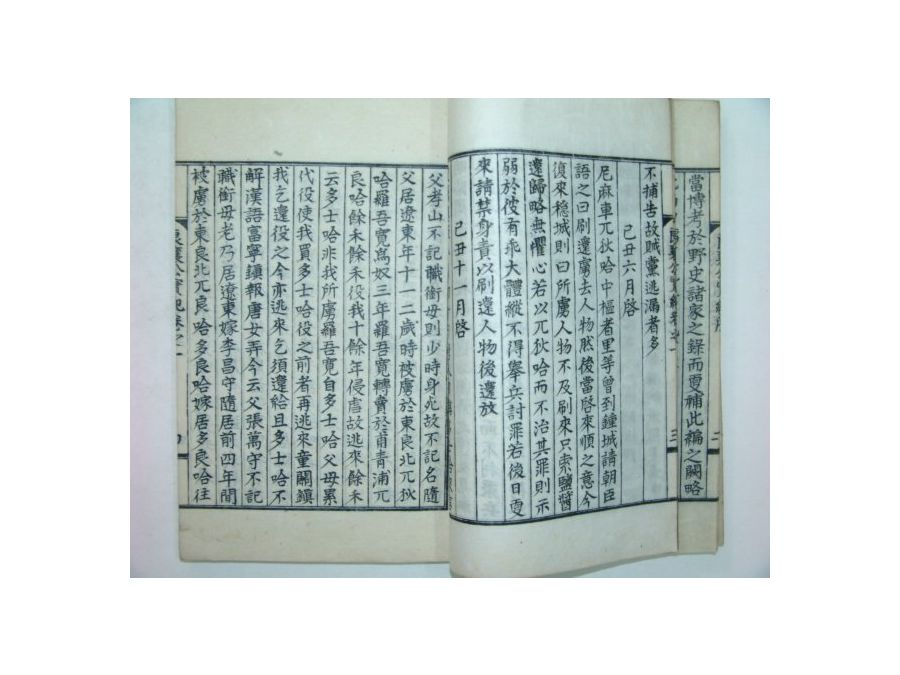 當博考於野史諸家之錄而更補此編之闕略
不捕告故賊黨逃漏者多
己丑六月啓
尼麻車兀狄哈中樞者里等曾到鐘城請朝臣
語之曰刷還虜去人物然後當啓來順之意今
復來穩城則曰所虜人物不及刷來只索鹽醬
還歸略無懼心若以兀狄哈而不治其罪則示
弱於彼有乖大體縱不得擧兵討罪若後日更
來請禁身責以刷還人物後還放
己丑十一月啓
三
父孝山不記職銜母則少時身死故不記名隨
父居遼東年十一二歲時被虜於東良北兀狄
哈羅吾寬爲奴三年羅吾寬轉賣於甫青浦兀
良哈餘未餘未役我十餘年侵虐故逃來餘未
云多士哈非我所虜羅吾寬自多士哈父母累
代役使我買多士哈役之前者再逃來童關鎭
我乞還役之今亦逃來乞須還給且多士哈不
解漢語富寧鎭報唐女弄今云父張萬守不記
職銜母老乃居遼東嫁李昌守隨居前四年間
被虜於東良北兀良哈多良哈嫁居多良哈往
襄公實紀卷之一